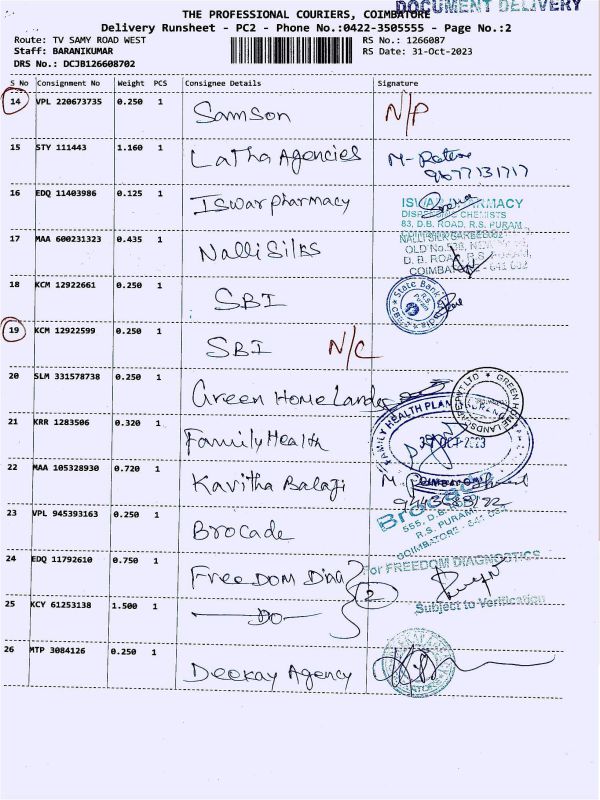 DOCUMENT DELIVERY
THE PROFESSIONAL COURIERS, COIMBATORE
Delivery Runsheet - PC2 - Phone No.:0422-3505555 - Page No.:2
Route: TV SAMY ROAD WEST RS No.: 1266087
Staff: BARANIKUMAR RS Date: 31-Oct-2023
DRS No.: DCJB126608702
S No Consignment No Weight PCS Consignee Details Signature
14 VPL 220673735 0.250 1 Samson N/P
15 STY 111443 1.160 1 Latha Agencies M-
9677131717
16 EDQ 11403986 0.125 1 Iswar pharmacy
ISWAR PHARMACY
DISPENSING CHEMISTS
83, D.B. ROAD, R.S. PURAM,
17 MAA 600231323 0.435 1 Nalli Silks
OLD No.538,
D. B. ROAD, R.S.
COIMBA
18 KCM 12922661 0.250 1 SBI
State Bank
R.S. Puram
19 KCM 12922599 0.250 1 SBI N/C
20 SLM 331578738 0.250 1 Green Home Landes
GREEN HOME LANDS
21 KRR 1283506 0.320 1 Family Health
FAMILY HEALTH PLAN
OCT 2023
22 MAA 105328930 0.720 1 Kavitha Balaji M.
23 VPL 945393163 0.250 1 Brocade
Brocade
555, D.B.
R.S. PURAM
COIMBATORE - 641 002
24 EDQ 11792610 0.750 1 Freedom Diag
For FREEDOM DIAGNOSTICS
2
25 KCY 61253138 1.500 1 Do
Subject to Verification
26 MTP 3084126 0.250 1 Deekay Agency